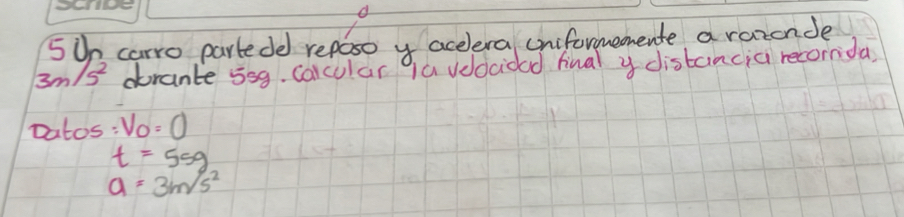 scribe
0
5 Un carro parte del reposo y acelera uniformemente a razon de
3m/s² durante 5sg. Calcular la velocidad final y distancia recorrida.
Datos: Vo = 0
t = 5sg
a = 3m/s²